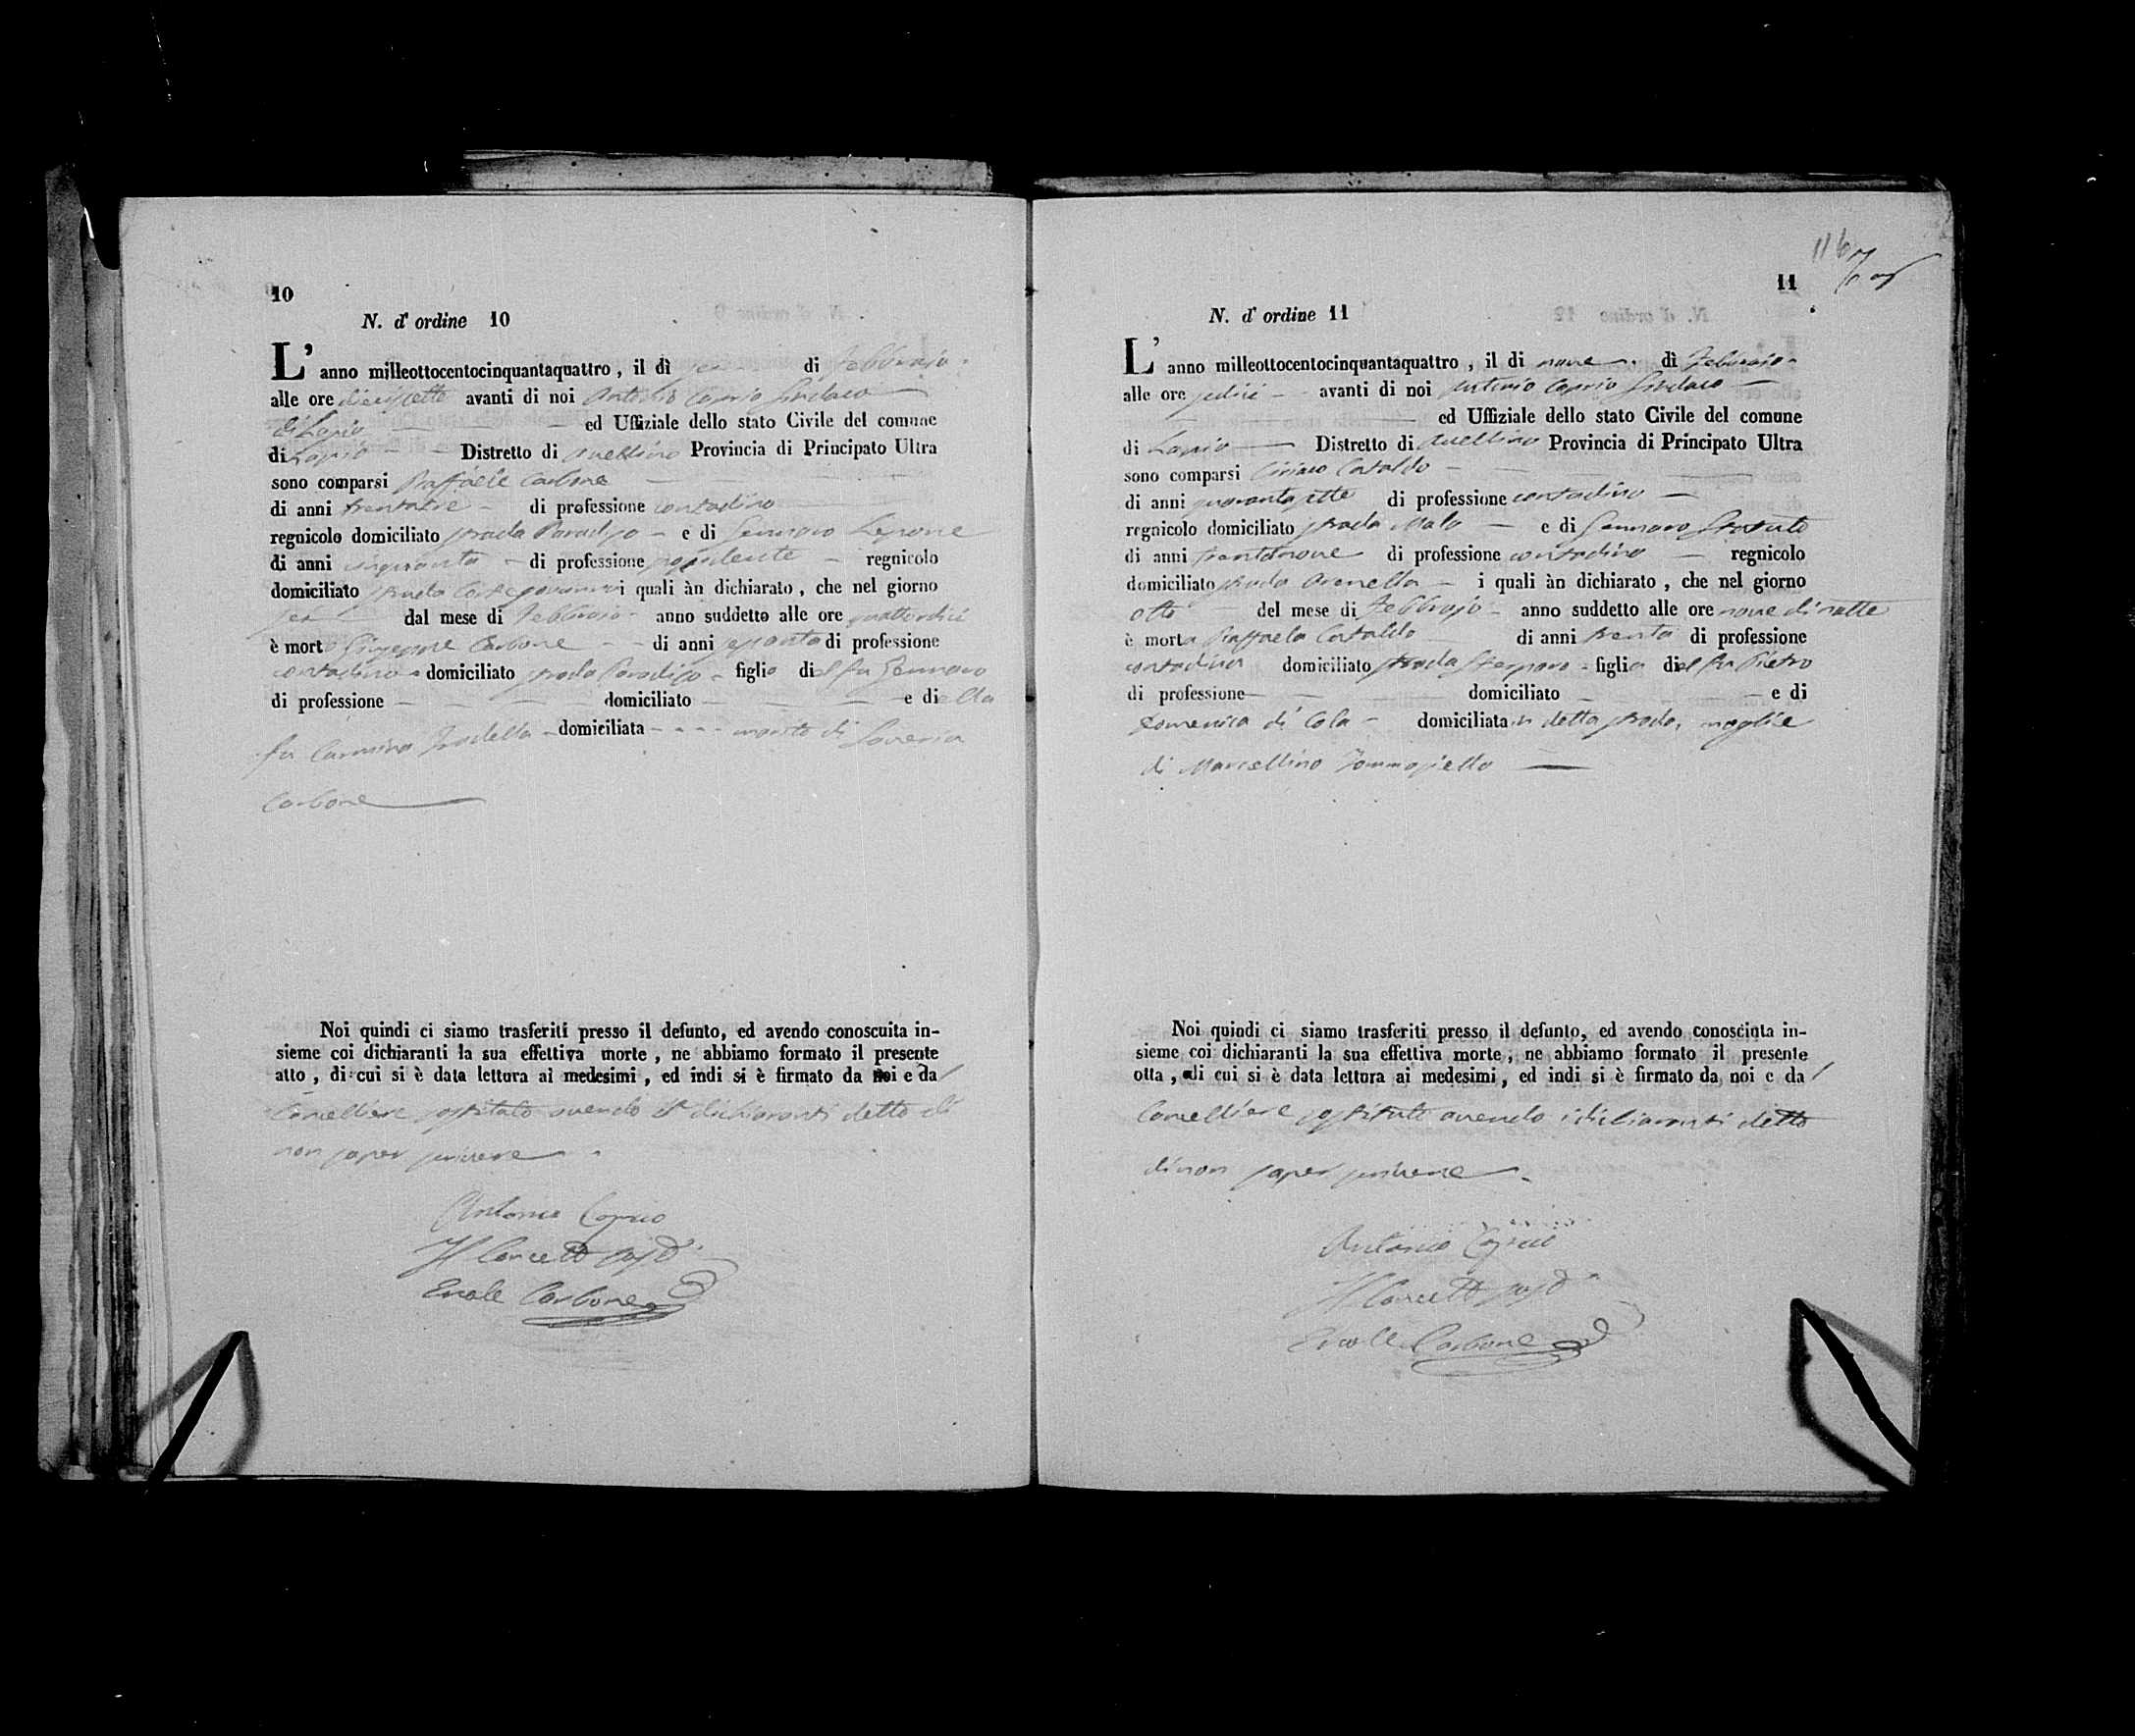 10
N. d' ordine 10
L' anno milleottocentocinquantaquattro, il dì sei di Febbraio
alle ore diecisette avanti di noi Antonio Caprio Sindaco
di Lapio ed Uffiziale dello stato Civile del comune
di Lapio Distretto di Avellino Provincia di Principato Ultra
sono comparsi Raffaele Carbone
di anni trentatre di professione contadino
regnicolo domiciliato strada Paradiso e di Gennaro Lepone
di anni cinquanta di professione possidente regnicolo
domiciliato strada i quali àn dichiarato, che nel giorno
sei dal mese di Febbraio anno suddetto alle ore quattordici
è morto Giuseppe Carbone di anni sessanta di professione
contadino domiciliato strada Paradiso figlio del fu Gennaro
di professione domiciliato e di ella
fu Carmina domiciliata marito di Saveria
Carbone
Noi quindi ci siamo trasferiti presso il defunto, ed avendo conoscuita in-
sieme coi dichiaranti la sua effettiva morte, ne abbiamo formato il presente
atto, di cui si è data lettura ai medesimi, ed indi si è firmato da noi e da
Cancelliere sostituto avendo i dichiaranti detto di
non saper scrivere
Antonio Caprio
Il Cancell sostº
Ercole Carbone
11
N. d' ordine 11
L' anno milleottocentocinquantaquattro, il di nove dì Febbraio
alle ore sedici avanti di noi Antonio Caprio Sindaco
ed Uffiziale dello stato Civile del comune
di Lapio Distretto di Avellino Provincia di Principato Ultra
sono comparsi Ciriaco Cataldo
di anni quarantasette di professione contadino
regnicolo domiciliato strada Malo e di Gennaro
di anni trentanove di professione contadino regnicolo
domiciliato strada Arenella i quali àn dichiarato, che nel giorno
otto del mese di Febbrajo anno suddetto alle ore nove di notte
è morta Raffaela Cataldo di anni trenta di professione
contadina domiciliato strada figlia del fu Pietro
di professione domiciliato e di
Domenica di Cola domiciliata in detta strada, moglie
di Marcellino Tommasiello
Noi quindi ci siamo trasferiti presso il defunto, ed avendo conosciuta in-
sieme coi dichiaranti la sua effettiva morte, ne abbiamo formato il presente
otta, di cui si è data lettura ai medesimi, ed indi si è firmato da noi e da
Cancelliere sostituto avendo i dichiaranti detto
di non saper scrivere
Antonio Caprio
Il Cancell sostº
Ercole Carbone